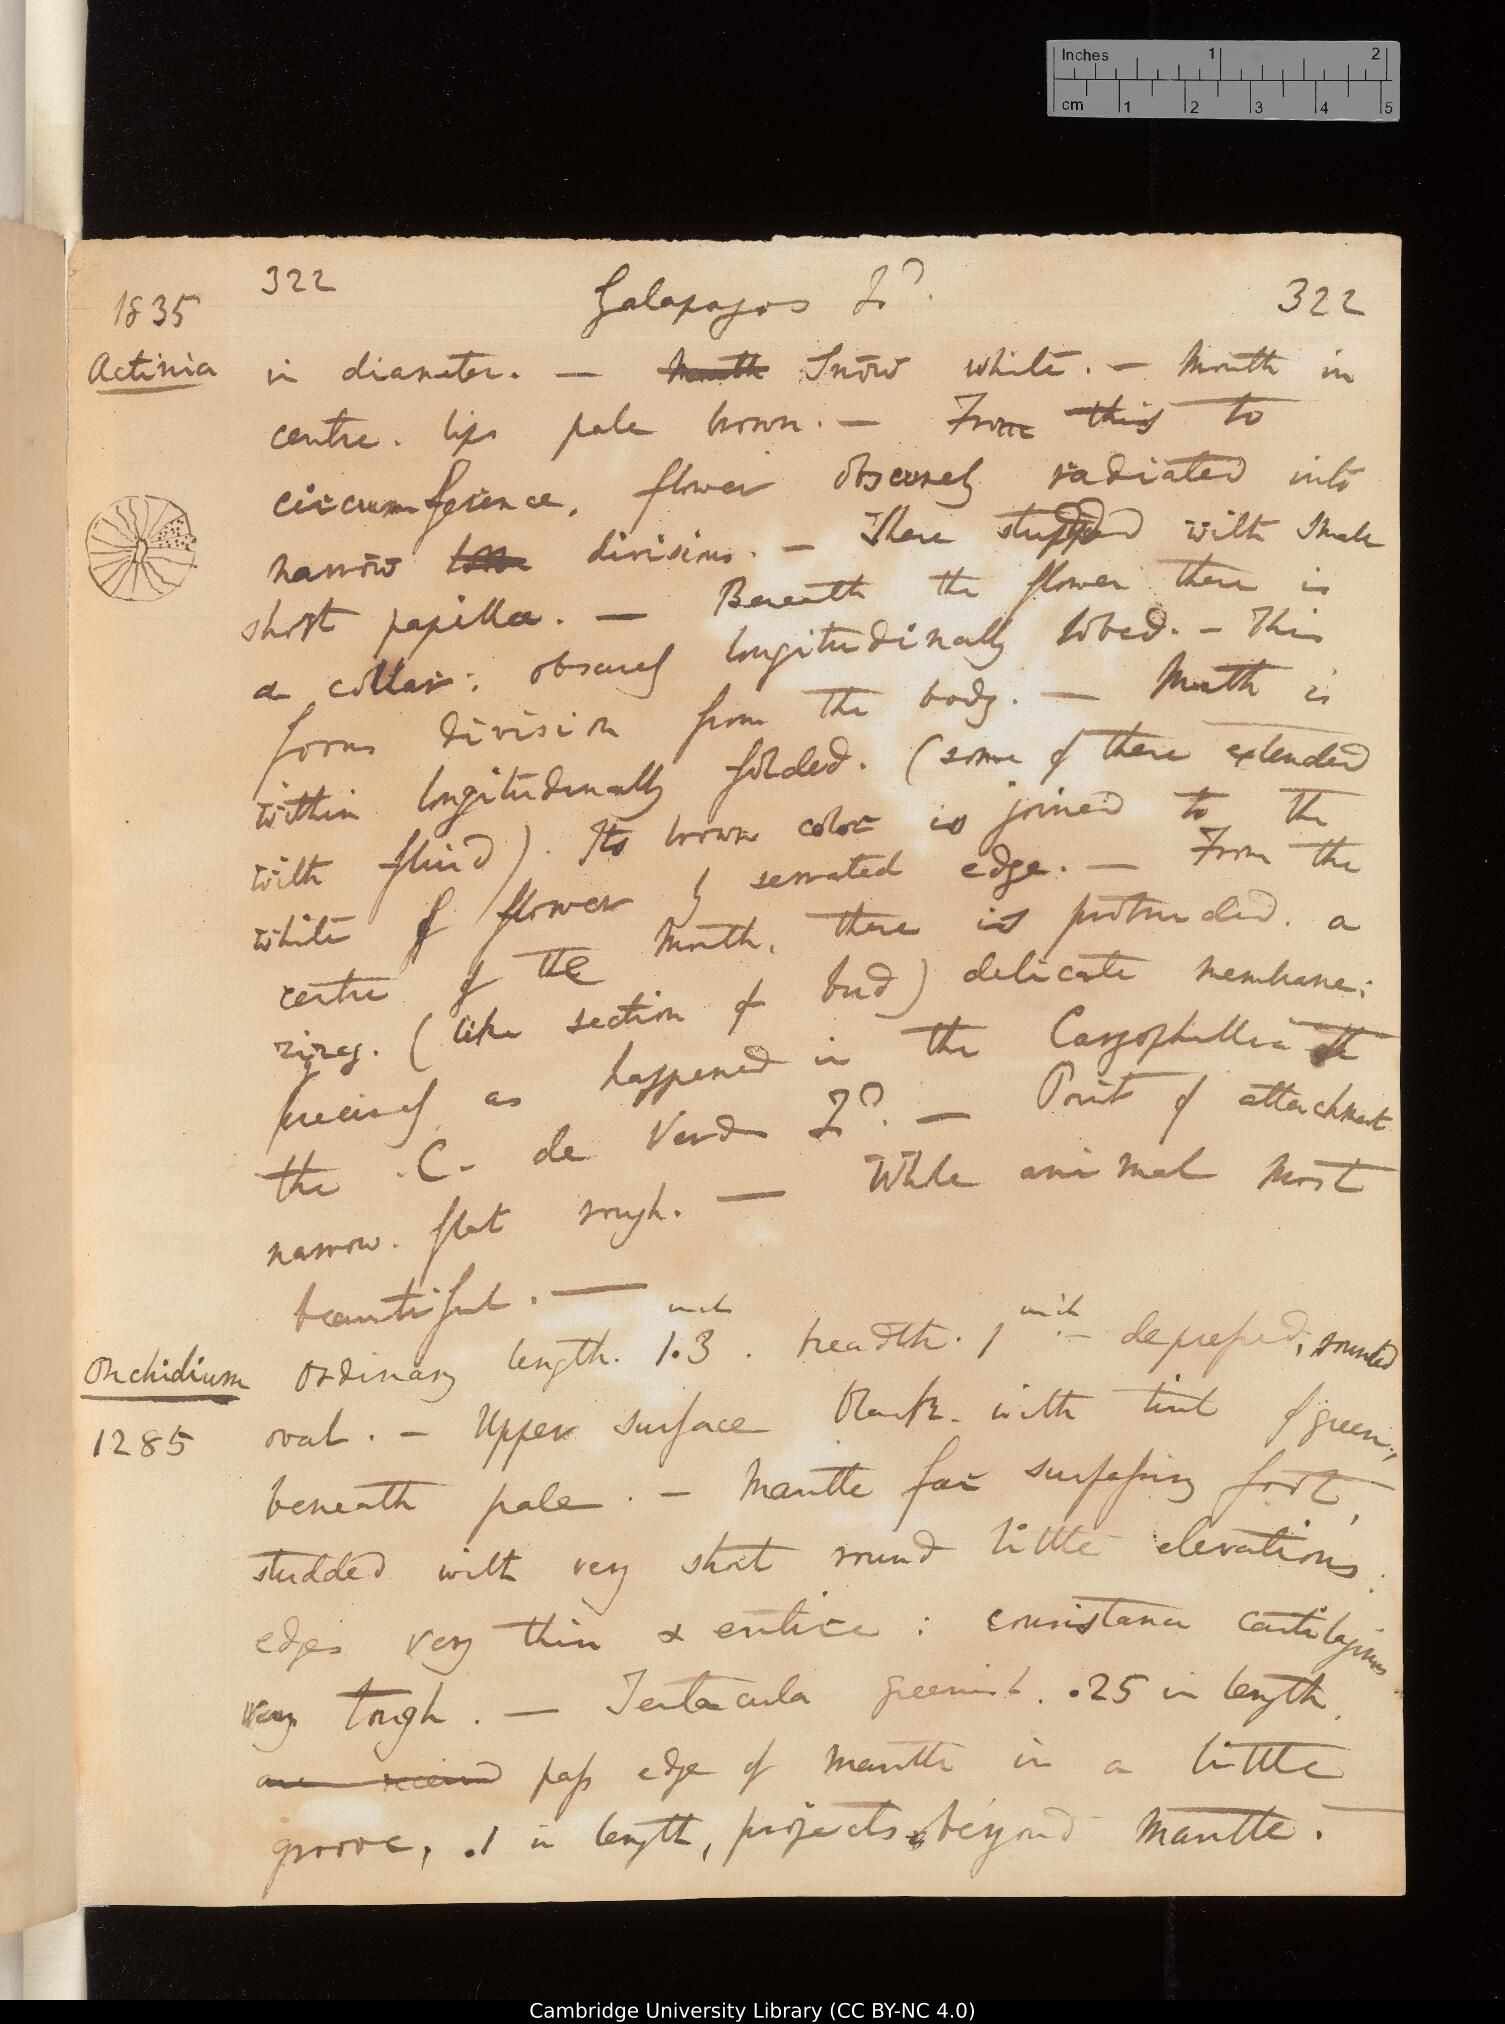 Inches 1 2
cm 1 2 3 4 5
322 Galapagos Is. 322
1835
Actinia
in diameter. — Mouth Snow white. — Mouth in
centre. lips pale brown. — From this to
circumference, flower obscurely radiated into
narrow divisions. — These studded with small
short papillæ. — Beneath the flower there is
a collar: obscurely longitudinally lobed. — This
forms division from the body. — Mouth is
within longitudinally folded. (some of these extended
with fluid). Its brown color is joined to the
white of flower by serrated edge. — From the
centre of the mouth, there is protruded. a
(like section of bud) delicate membrane;
precisely as happened in the Caryophillia
the C. de Verd Is. — Point of attachment
narrow. flat rough. — Whole animal most
beautiful. —
Onchidium
1285
Ordinary length. 1.3 inch. breadth. 1 inch — depressed, rounded
oval. — Upper surface black with tint of green;
beneath pale. — Mantle far surpassing foot,
studded with very short round little elevations:
edges very thin & entire: consistance cartilaginous
very tough. — Tentacula greenish. .25 in length,
are pass edge of mantle in a little
groove, .1 in length, projects beyond mantle.
Cambridge University Library (CC BY-NC 4.0)